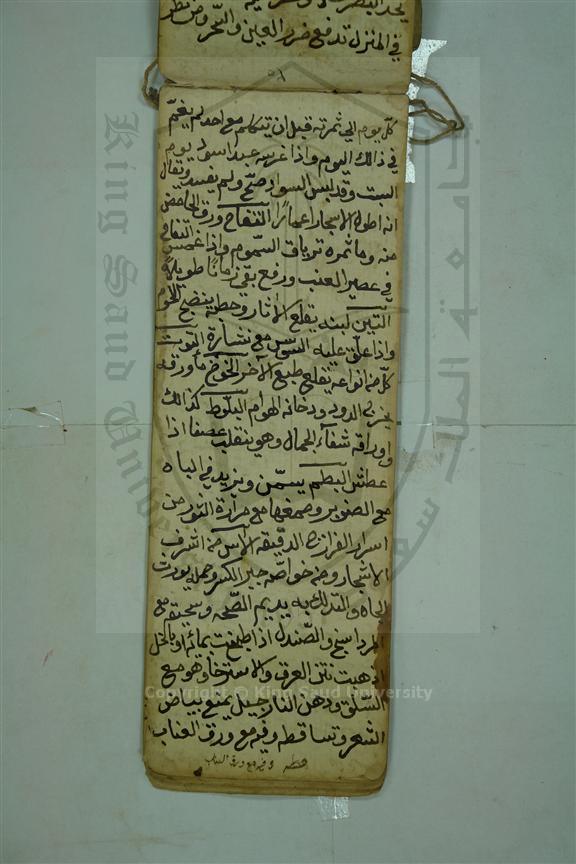 في المنزل تدفع ضرر العين والسحر ومن نظر
كل يوم الي ثمرته قبل ان يتكلم مع احد لم يغم
في ذالك اليوم واذا غرسه عبد اسود يوم
السبت وقد لبس السواد صح ولم يفسد ويقال
انه اطول الاشجار اعمارًا التفاح ورق الحامض
منه وما ثمره ترياق السموم واذا غمس التفاح
في عصير العنب ورفع بقي زمانًا طويلاً
التين لبنه يقلع الاثار وحطبه ينضج اللحوم
واذا علق عليه السوس مع نشارة التوت
كل من انواعه يقلع طبع الآخر الخوخ ماورقه
يخرج الدود ودخانه الهوام البلوط كذالك
واوراقه شفاء الجمال وهو ينقلب عصفا اذا
عطش البطم يسمن ويزيد في الباه
مع الصنوبر وصمغها مع مرارة الثور من
اسرار الفرازج الدقيقه الآس من اشرف
الاشجار ومن خواصه جبر الكسر وحمله يورث
الجاه والتدلك به يديم الصحه وسحيقه مع
المرداسنج والصندل اذا طبخت بمائه او بالخل
اذهبت نتن العرق والاسترخا وهو مع
السلق ودهن النارجيل يمنع بياض
الشعر وتساقطه وفيه مع ورق العناب
Copyright © King Saud University
King Saud University
جامعة الملك سعود